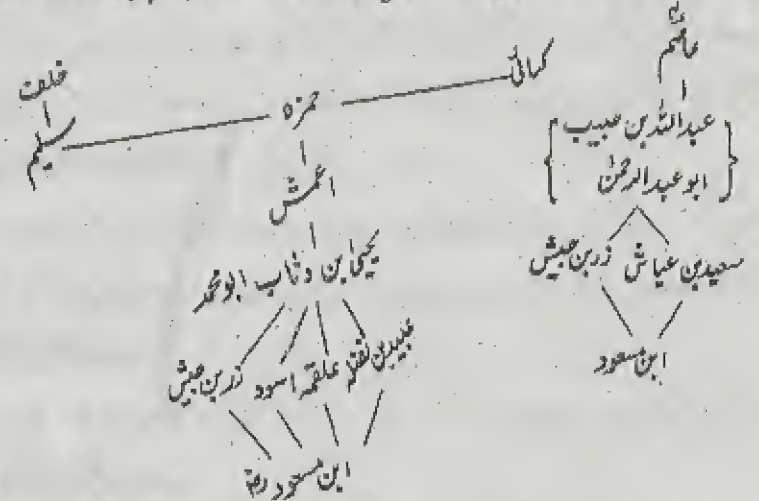 عاصمؒ
عبداللہ بن حبیب
ابو عبدالرحمٰن
سعید بن عیاش زر بن حبیش
ابن مسعود
کسائیؒ
حمزہ
خلف
سلیم
اعمش
یحییٰ ابن وثاب ابو محمد
عبید بن نضلہ علقمہ اسود زر بن حبیش
ابن مسعود رضؓ